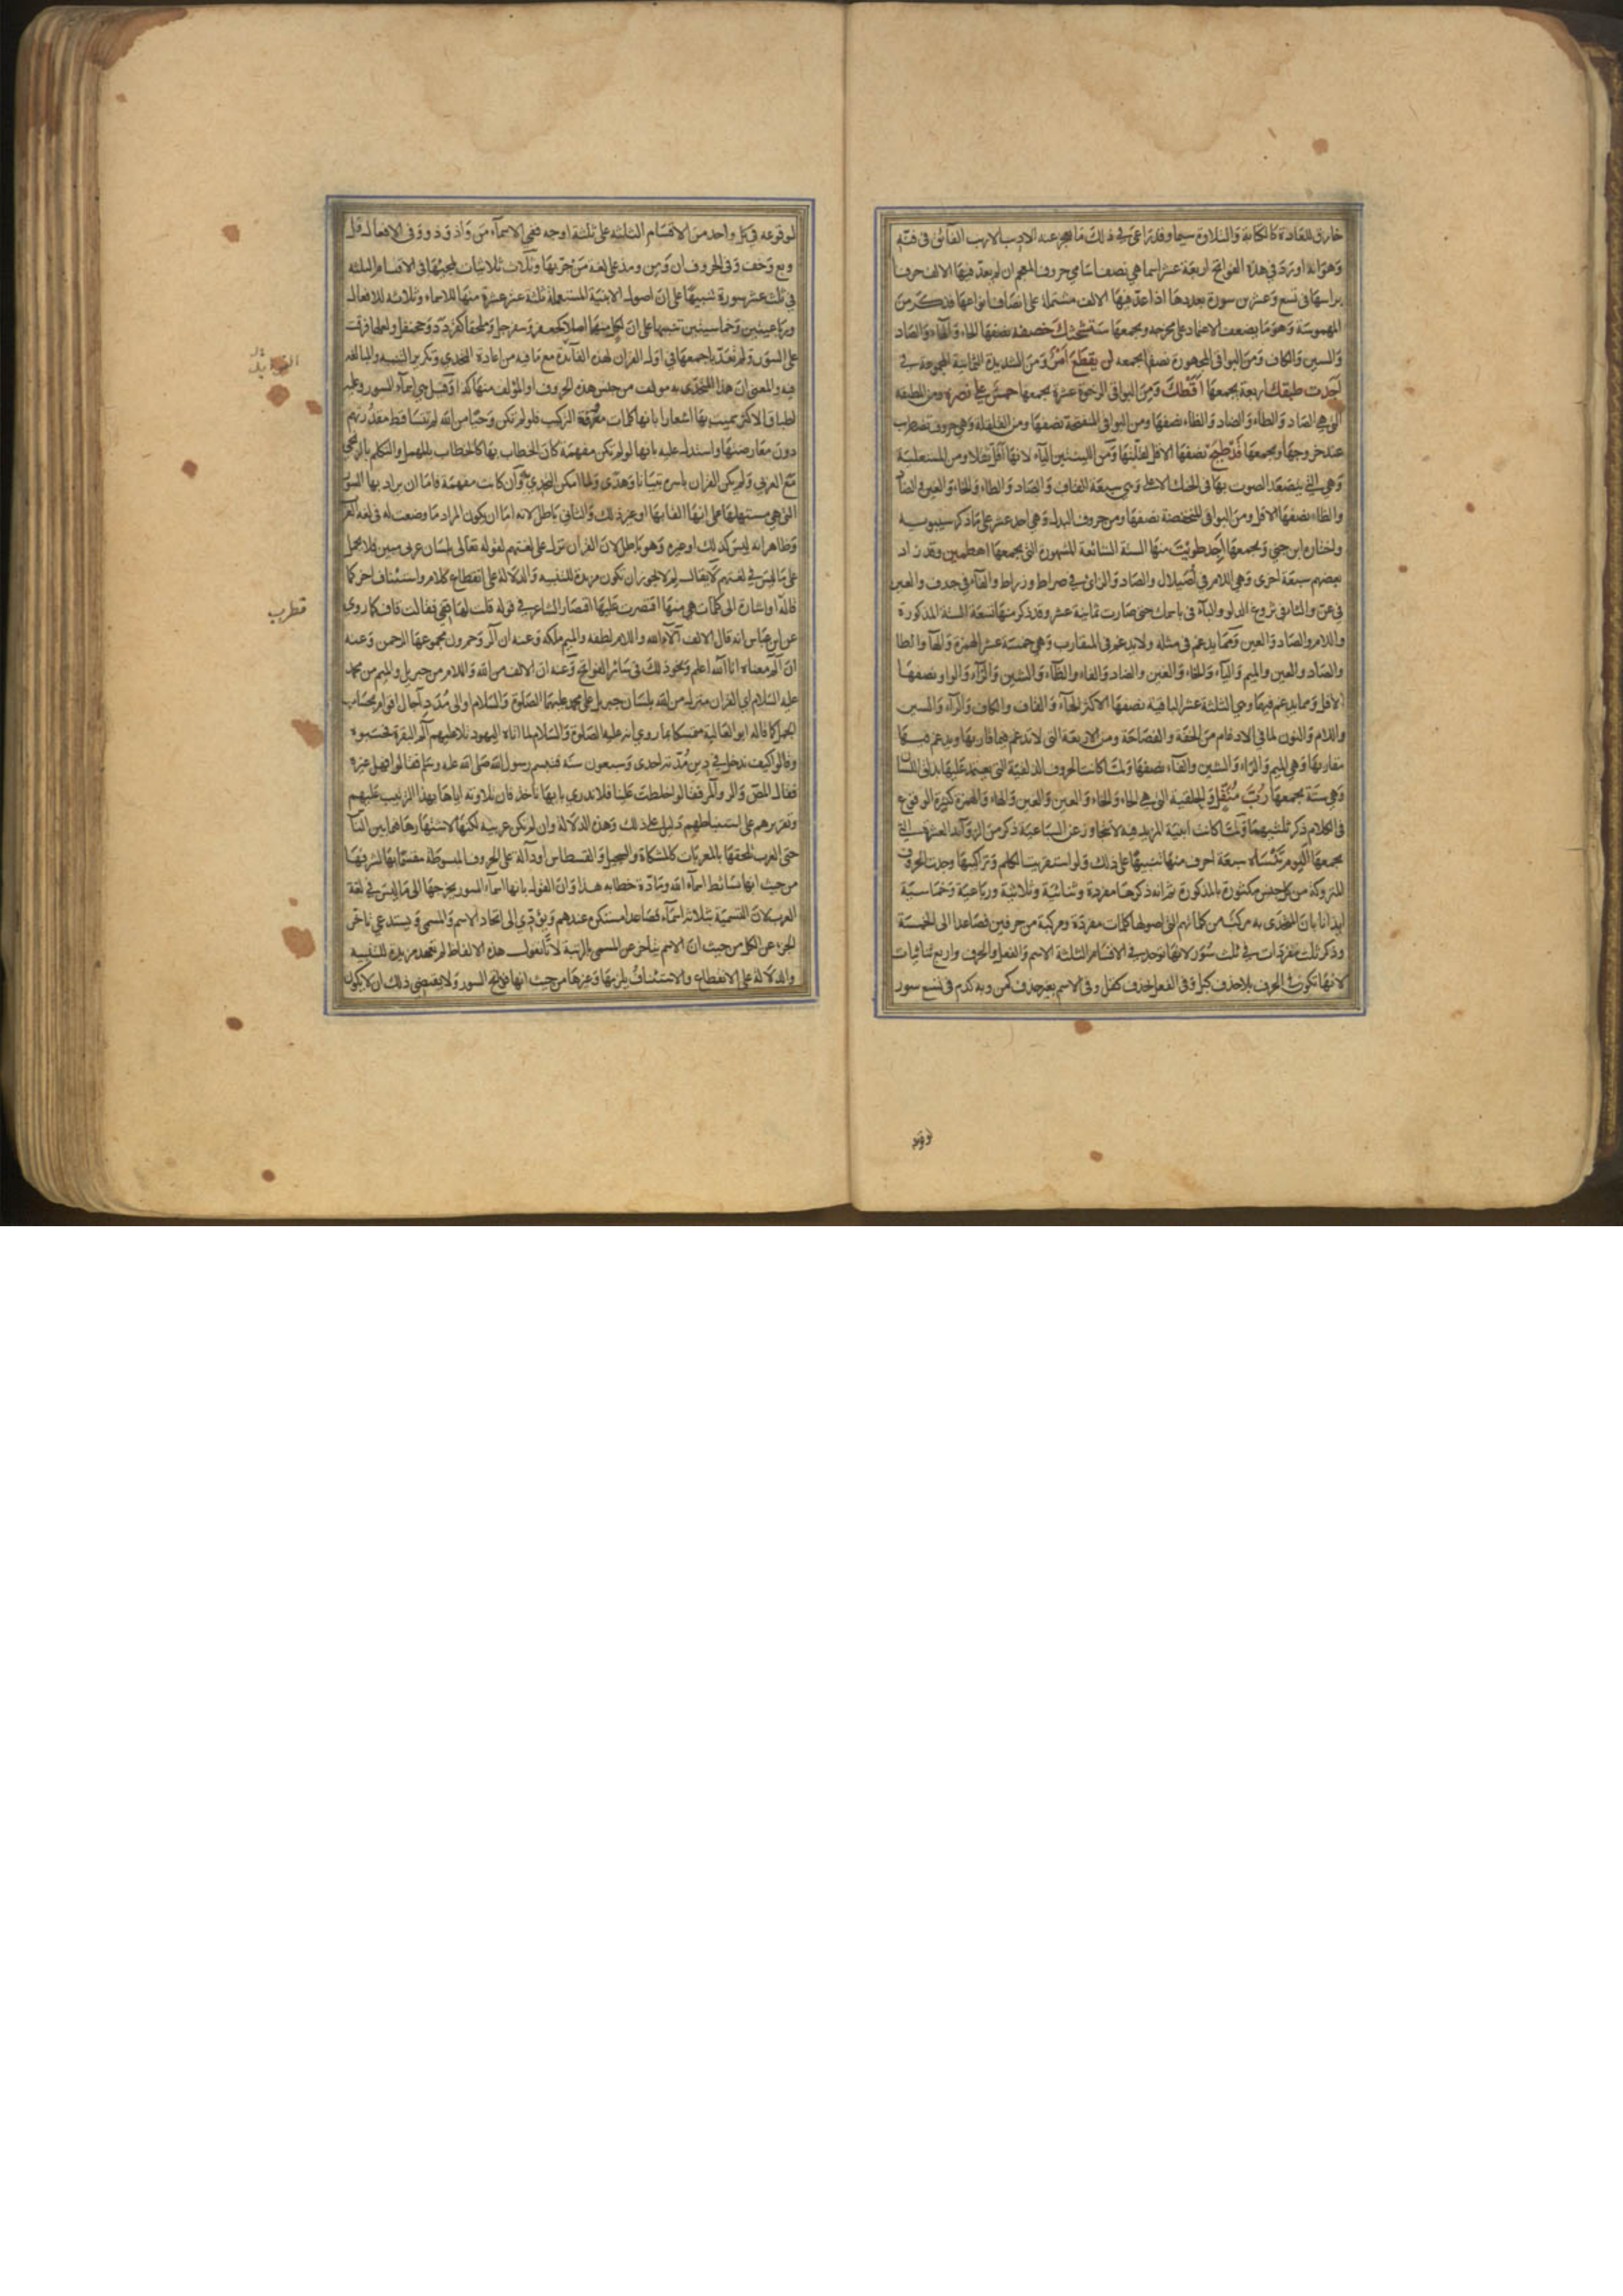 خارق للعادة كالكتابة والتلاوة سيما وقد راعى في ذلك ما يعجز عنه الاديب الاريب الفائق في فنه
وهو انه اورد في هذه الفواتح اربعة عشر اسما هي نصف اسامي حروف المعجم ان لم يعد فيها الالف حرفا
براسها في تسع وعشرين سورة بعددها اذا عد فيها الالف مشتملة على انصاف انواعها فذكر من
المهموسة وهو ما يضعف الاعتماد على مخرجه ويجمعها ستشحثك خصفه نصفها الحاء والهاء والصاد
والسين والكاف ومن البواقي المجهورة نصفها يجمعه لن يقطع امر ومن الشديدة الثمانية المجموعة في
اجدت طبقك اربعة يجمعها اقطك ومن البواقي الرخوة عشرة يجمعها حمس على نصره ومن المطبقة
التي هي الصاد والطاء والضاد والظاء نصفها ومن البواقي المنفتحة نصفها ومن القلقلة وهي حروف تضطرب
عند خروجها ويجمعها قد طبج نصفها الاقل لقلتها ومن اللينتين الياء لانها اقل ثقلا ومن المستعلية
وهي التي يتصعد الصوت بها في الحنك الاعلى وهي سبعة القاف والصاد والطاء والخاء والغين والضاد
والظاء نصفها الاقل ومن البواقي المنخفضة نصفها ومن حروف البدل وهي احد عشر على ما ذكره سيبويه
واختاره ابن جني ويجمعها اجد طويت منها الستة الشائعة المشهورة التي يجمعها اهطمين وقد زاد
بعضهم سبعة اخرى وهي اللام في اصيلال والصاد والزاي في صراط وزراط والفاء في جدف والعين
في عن والثاء في ثروغ الدلو والباء في باسمك حتى صارت ثمانية عشر وقد ذكر منها تسعة الستة المذكورة
واللام والصاد والعين ومما يدغم في مثله ولا يدغم في المقارب وهي خمسة عشر الهمزة والهاء والطا
والصاد والعين والميم والياء والخاء والغين والضاد والفاء والظاء والشين والزاء والواو نصفها
الاقل ومما يدغم فيهما وهي الثلثة عشر الباقية نصفها الاكثر الحاء والقاف والكاف والراء والسين
واللام والنون لما في الادغام من الخفة والفصاحة ومن الاربعة التي لا تدغم فيما قاربها ويدغم فيها
مقاربها وهي الميم والراء والشين والفاء نصفها ولما كانت الحروف الذلقية التي يعتمد عليها بذلق اللسان
وهي ستة يجمعها رب منفل والحلقية التي هي الحاء والخاء والعين والغين والهاء والهمزة كثيرة الوقوع
في الكلام ذكر ثلثيهما ولما كانت ابنية المزيد فيه لا تتجاوز عن السباعية ذكر من الزوائد العشرة التي
يجمعها اليوم تنساه سبعة احرف منها تنبيها على ذلك ولو استقريت الكلم وتراكيبها وجدت الحروف
المتروكة من كل جنس مكثورة بالمذكورة ثم انه ذكرها مفردة وثنائية وثلاثية ورباعية وخماسية
ايذانا بان المتحدى به مركب من كلماتهم التي اصولها كلمات مفردة ومركبة من حرفين فصاعدا الى الخمسة
وذكر ثلث مفردات في ثلث سور لانها توجد في الاقسام الثلثة الاسم والفعل والحرف واربع ثنائيات
لانها تكون في الحرف بلا حذف كبل وفي الفعل بحذف كقل وفي الاسم بغير حذف كمن وبه كدم في تسع سور
لوقوعه في كل واحد من الاقسام الثلثة على ثلثة اوجه ففي الاسماء من واذ وذو وفي الافعال قل
وبع وخف وفي الحروف ان ومن ومذ على لغة من جر بها وثلاث ثلاثيات لمجيئها في الاقسام الثلثة
في ثلث عشر سورة تنبيها على ان اصول الابنية المستعملة ثلثة عشر عشرة منها للاسماء وثلاثة للافعال
ورباعيتين وخماسيتين تنبيها على ان لكل منها اصلا كجعفر وسفرجل وملحقا كقردد وجحنفل ولعلها فرقت
على السور ولم تعد باجمعها في اول القران لهذه الفائدة مع ما فيه من اعادة التحدي وتكرير التنبيه والمبالغة
فيه والمعنى ان هذا المتحدى به مولف من جنس هذه الحروف او المؤلف منها كذا وقيل هي اسماء السور وعليه
اطباق الاكثر سميت بها اشعارا بانها كلمات معروفة التركيب فلو لم تكن وحيا من الله لم تتساقط مقدرتهم
دون معارضتها واستدل عليه بانها لو لم تكن مفهمة كان الخطاب بها كالخطاب بالمهمل والتكلم بالزنجي
مع العربي ولم يكن القران باسره تبيانا وهدى ولما امكن التحدي به وان كانت مفهمة فاما ان يراد بها السور
التي هي مستهلها على انها القابها او غير ذلك والثاني باطل لانه اما ان يكون المراد ما وضعت له في لغة العرب
وظاهر انه ليس كذلك او غيره وهو باطل لان القران نزل على لغتهم لقوله تعالى بلسان عربي مبين فلا يحمل
على ما ليس في لغتهم لا يقال لم لا يجوز ان تكون مزيدة للتنبيه والدلالة على انقطاع كلام واستئناف اخر كما
قاله او اشارة الى كلمات هي منها اقتصرت عليها اقتصار الشاعر في قوله قلت لها قفي فقالت قاف كما روي
قطرب
عن ابن عباس انه قال الالف آلاء الله واللام لطفه والميم ملكه وعنه ان الر وحم ون مجموعها الرحمن وعنه
ان الم معناه انا الله اعلم ونحو ذلك في سائر الفواتح وعنه ان الالف من الله واللام من جبريل والميم من محمد
عليه السلام اي القران منزل من الله بلسان جبريل على محمد عليهما الصلوة والسلام او الى مدد آجال اقوام بحساب
الجمل كما قاله ابو العالية متمسكا بما روي انه عليه الصلوة والسلام لما اتاه اليهود تلا عليهم الم البقرة فحسبوه
وقالوا كيف ندخل في دين مدته احدى وسبعون سنة فتبسم رسول الله صلى الله عليه وسلم فقالوا فهل غيره
فقال المص والر والمر فقالوا خلطت علينا فلا ندري بايها ناخذ فان تلاوته اياها بهذا الترتيب عليهم
وتقريرهم على استنباطهم دليل على ذلك وهذه الدلالة وان لم تكن عربية لكنها لاشتهارها فيما بين الناس
حتى العرب تلحقها بالمعربات كالمشكاة والسجيل والقسطاس او دالة على الحروف المبسوطة مقسما بها لشرفها
من حيث انها بسائط اسماء الله ومادة خطابه هذا وان القول بانها اسماء السور يخرجها الى ما ليس في لغة
العرب لان التسمية بثلاثة اسماء فصاعدا مستكره عندهم ويؤدي الى اتحاد الاسم والمسمى ويستدعي تاخر
الجزء عن الكل من حيث ان الاسم يتاخر عن المسمى بالرتبة لانا نقول هذه الالفاظ لم تعهد مزيدة للتنبيه
والدلالة على الانقطاع والاستئناف يلزمها وغيرها من حيث انها فواتح السور ولا يقتضي ذلك ان لا يكون